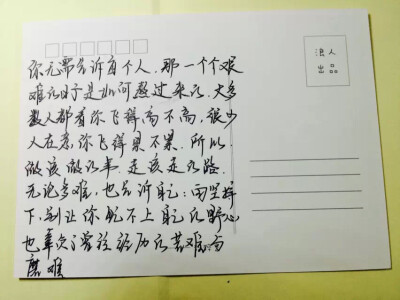 你无需告诉每个人,那一个个艰
难的日子是如何熬过来的,大多
数人都看你飞得高不高,很少
人在意你飞得累不累。所以,
做该做的事,走该走的路
无论多难,也告诉自己:再坚持
下,别让你配不上自己的野心
也辜负了曾经经历的苦难与
磨难
浪人
出品